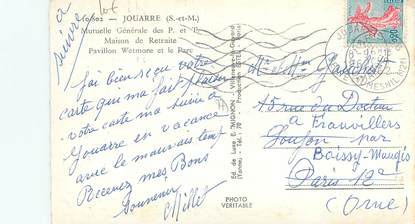 à suivre
10.802 — JOUARRE (S.-et-M.)
Mutuelle Générale des P. et T.
Maison de Retraite
Pavillon Wetmore et le Parc
J'ai bien reçu votre
carte qui ma fait plaisir
votre carte ma suivi à
Jouarre en vacance
avec le mauvais temps
Recevez mes Bons
Souvenirs
Millet
Ed. de Luxe E. MIGNON
(Yonne) - Tél. 70
PHOTO
VÉRITABLE
Mr et Mme
15 rue du Docteur
à Franvillers
par
Boissy-Maugis
Paris 12e
(Orne)